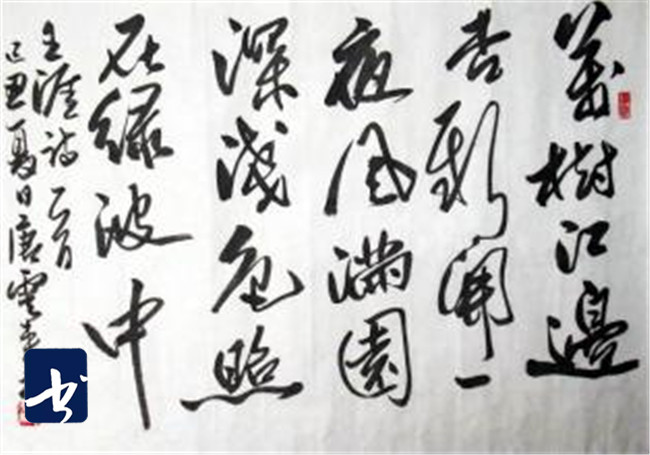 萬樹江邊
杏新開一
夜風滿園
深淺色照
在綠波中
王涯詩一首
己丑夏日唐雲來
书